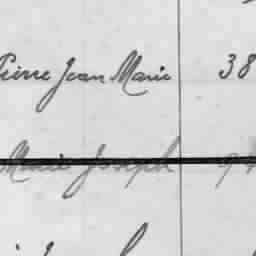 Pierre Jean Marie 38
Marie Joseph